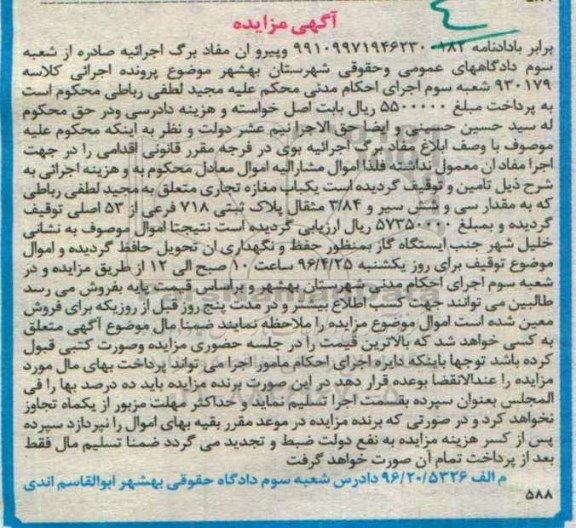 آگهی مزایده
برابر بادادنامه ۱۸۲-۹۹۱۰۹۹۷۱۹۴۶۲۳۰ وپیرو ان مفاد برگ اجرائیه صادره از شعبه
سوم دادگاههای عمومی وحقوقی شهرستان بهشهر موضوع پرونده اجرائی کلاسه
۹۳۰۱۷۹ شعبه سوم اجرای احکام مدنی محکم علیه مجید لطفی رباطی محکوم است
به پرداخت مبلغ ۵۵۰۰۰۰۰ ریال بابت اصل خواسته و هزینه دادرسی ودر حق محکوم
له سید حسین حسینی و ایضا حق الاجرا نیم عشر دولت و نظر به اینکه محکوم علیه
موصوف با وصف ابلاغ مفاد برگ اجرائیه بوی در فرجه مقرر قانونی اقدامی را در جهت
اجرا مفاد ان معمول نداشته فلذا اموال مشارالیه اموال معادل محکوم به و هزینه اجرائی به
شرح ذیل تامین و توقیف گردیده است یکباب مغازه تجاری متعلق به مجید لطفی رباطی
که به مقدار سی و شش سیر و ۳/۸۴ مثقال پلاک ثبتی ۷۱۸ فرعی از ۵۳ اصلی توقیف
گردیده و بمبلغ ۵۷۳۵۰۰۰۰ ریال ارزیابی گردیده است نتیجتا اموال موصوف به نشانی
خلیل شهر جنب ایستگاه گاز بمنظور حفظ و نگهداری ان تحویل حافظ گردیده و اموال
موضوع توقیف برای روز یکشنبه ۹۶/۴/۲۵ ساعت ۱۰ صبح الی ۱۲ از طریق مزایده و در
شعبه سوم اجرای احکام مدنی شهرستان بهشهر و براساس قیمت پایه بفروش می رسد
طالبین می توانند جهت کسب اطلاع بیشتر و در مدت پنج روز قبل از روزیکه برای فروش
معین شده است اموال موضوع مزایده را ملاحظه نمایند ضمنا مال موضوع آگهی متعلق
به کسی خواهد شد که بالاترین قیمت را در جلسه حضوری مزایده وصورت کتبی قبول
کرده باشد توجها باینکه دایره اجرای احکام مامور اجرا می تواند پرداخت بهای مال مورد
مزایده را عندالانقضا بوعده قرار دهد در این صورت برنده مزایده باید ده درصد بها را فی
المجلس بعنوان سپرده بقسمت اجرا تسلیم نماید و حداکثر مهلت مزبور از یکماه تجاوز
نخواهد کرد و در صورتی که برنده مزایده در موعد مقرر بقیه بهای اموال را نپردازد سپرده
پس از کسر هزینه مزایده به نفع دولت ضبط و تجدید می گردد ضمنا تسلیم مال فقط
بعد از پرداخت تمام آن صورت خواهد گرفت
م الف ۹۶/۲۰/۵۳۲۶ دادرس شعبه سوم دادگاه حقوقی بهشهر ابوالقاسم اندی
۵۸۸